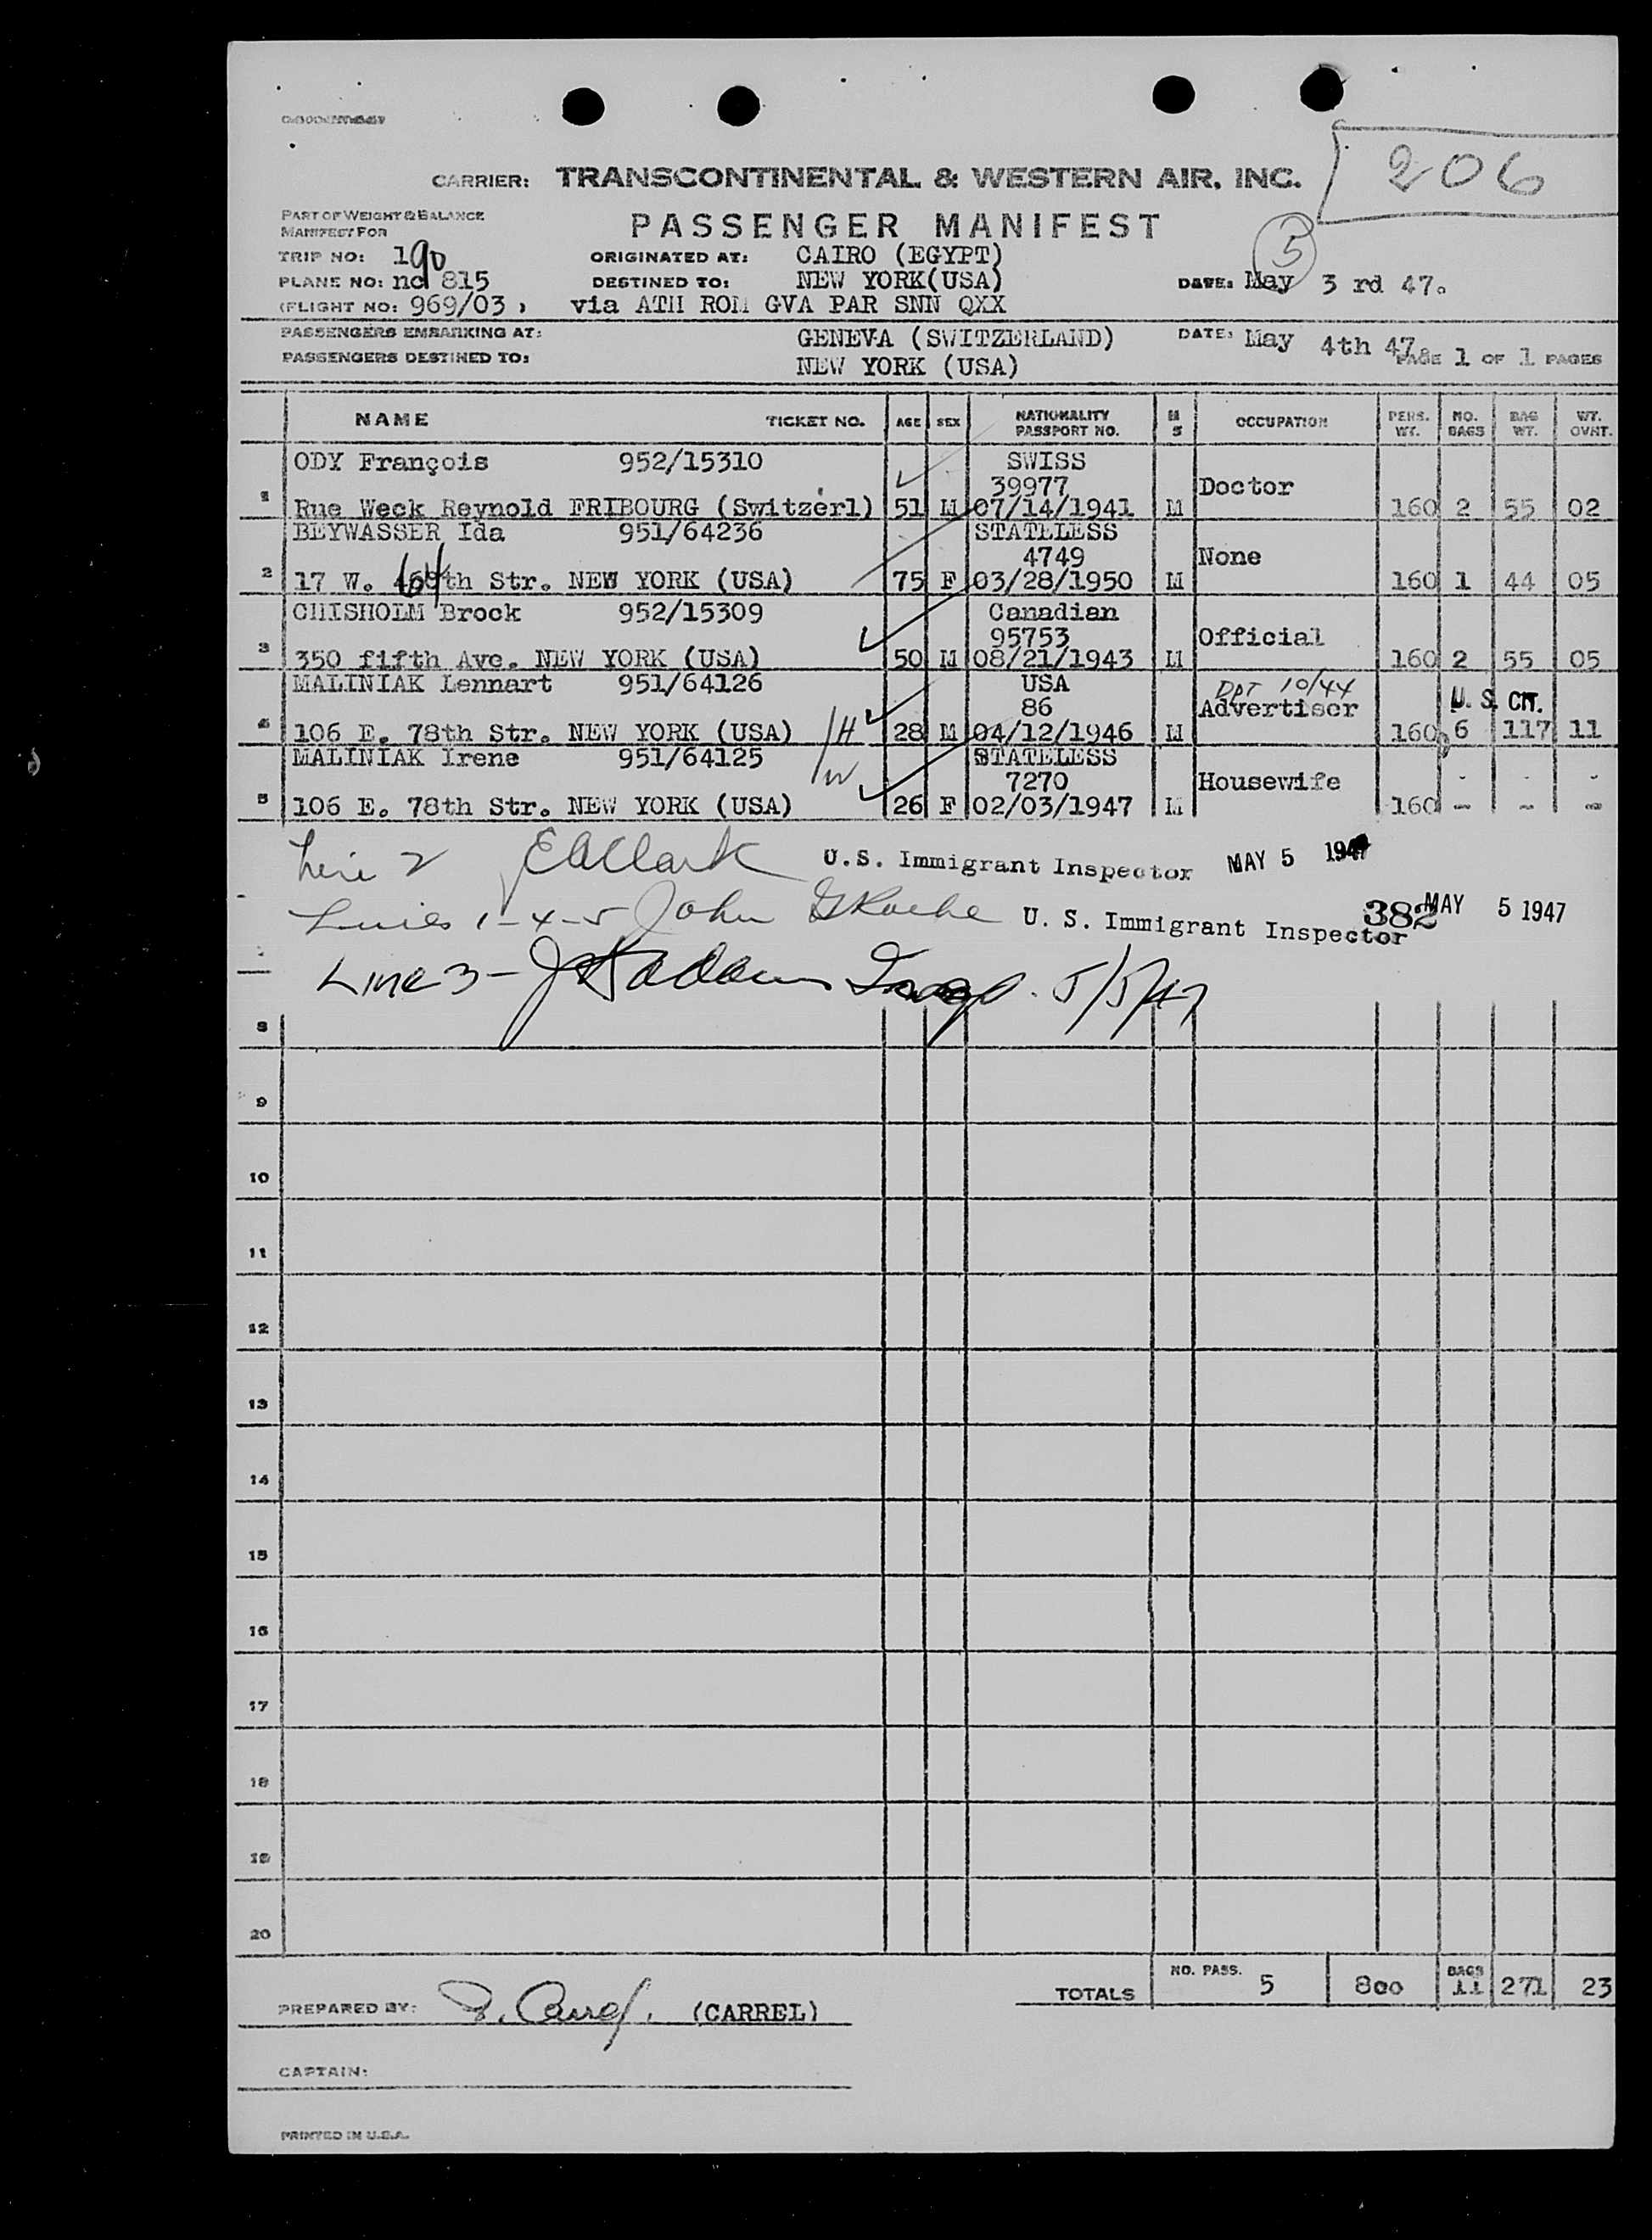 206
CARRIER: TRANSCONTINENTAL & WESTERN AIR, INC.
PART OF WEIGHT & BALANCE
MANIFEST FOR
PASSENGER MANIFEST
5
TRIP NO: 190 ORIGINATED AT: CAIRO (EGYPT)
PLANE NO: nc 815 DESTINED TO: NEW YORK(USA) DATE: May 3 rd 47.
(FLIGHT NO: 969/03) via ATH ROM GVA PAR SNN QXX
PASSENGERS EMBARKING AT: GENEVA (SWITZERLAND) DATE: May 4th 47.
PASSENGERS DESTINED TO: NEW YORK (USA) PAGE 1 OF 1 PAGES
NAME TICKET NO. AGE SEX NATIONALITY PASSPORT NO. M S OCCUPATION PERS. WT. NO. BAGS BAG WT. WT. OVHT.
ODY François 952/15310 SWISS
39977 Doctor
1 Rue Weck Reynold FRIBOURG (Switzerl) 51 M 07/14/1941 M 160 2 55 02
BEYWASSER Ida 951/64236 STATELESS
4749 None
2 17 W. 64th Str. NEW YORK (USA) 75 F 03/28/1950 M 160 1 44 05
CHISHOLM Brock 952/15309 Canadian
95753 Official
3 350 fifth Ave. NEW YORK (USA) 50 M 08/21/1943 M 160 2 55 05
MALINIAK Lennart 951/64126 USA DPT 10/44 U. S. CIT.
86 Advertiser
4 106 E. 78th Str. NEW YORK (USA) H 28 M 04/12/1946 M 160 6 117 11
MALINIAK Irene 951/64125 W STATELESS
7270 Housewife - - -
5 106 E. 78th Str. NEW YORK (USA) 26 F 02/03/1947 M 160 - - -
Line 2 EAClark U.S. Immigrant Inspector MAY 5 1947
Lines 1-4-5 John G Roche U. S. Immigrant Inspector 382 MAY 5 1947
Line 3- Insp. 5/5/47
8
9
10
11
12
13
14
15
16
17
18
19
20
TOTALS NO. PASS. 5 800 BAGS 11 271 23
PREPARED BY: (CARREL)
CAPTAIN:
PRINTED IN U.S.A.